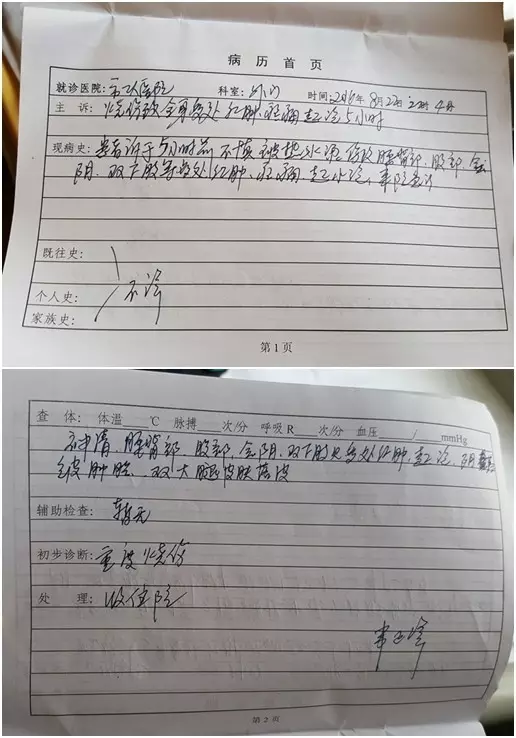 病历首页
就诊医院:市人医院 科室:外门 时间:2016年8月22日 时4分
主 诉:烧伤致全身多处红肿、疼痛起泡5小时
现病史:患者诉于5小时前不慎被热水烫伤致腰背部、股部、会
阴、双下肢等多处红肿、疼痛、起水泡,来院就诊
既往史:
不详
个人史:
家族史:
第1页
查 体: 体温 ℃ 脉搏 次/分 呼吸R 次/分 血压 / mmHg
神清,腰背部、股部、会阴、双下肢见多处红肿、起泡,阴
皮肿胀、双大腿皮肤落皮
辅助检查:暂无
初步诊断:重度烧伤
处 理:收住院
第2页